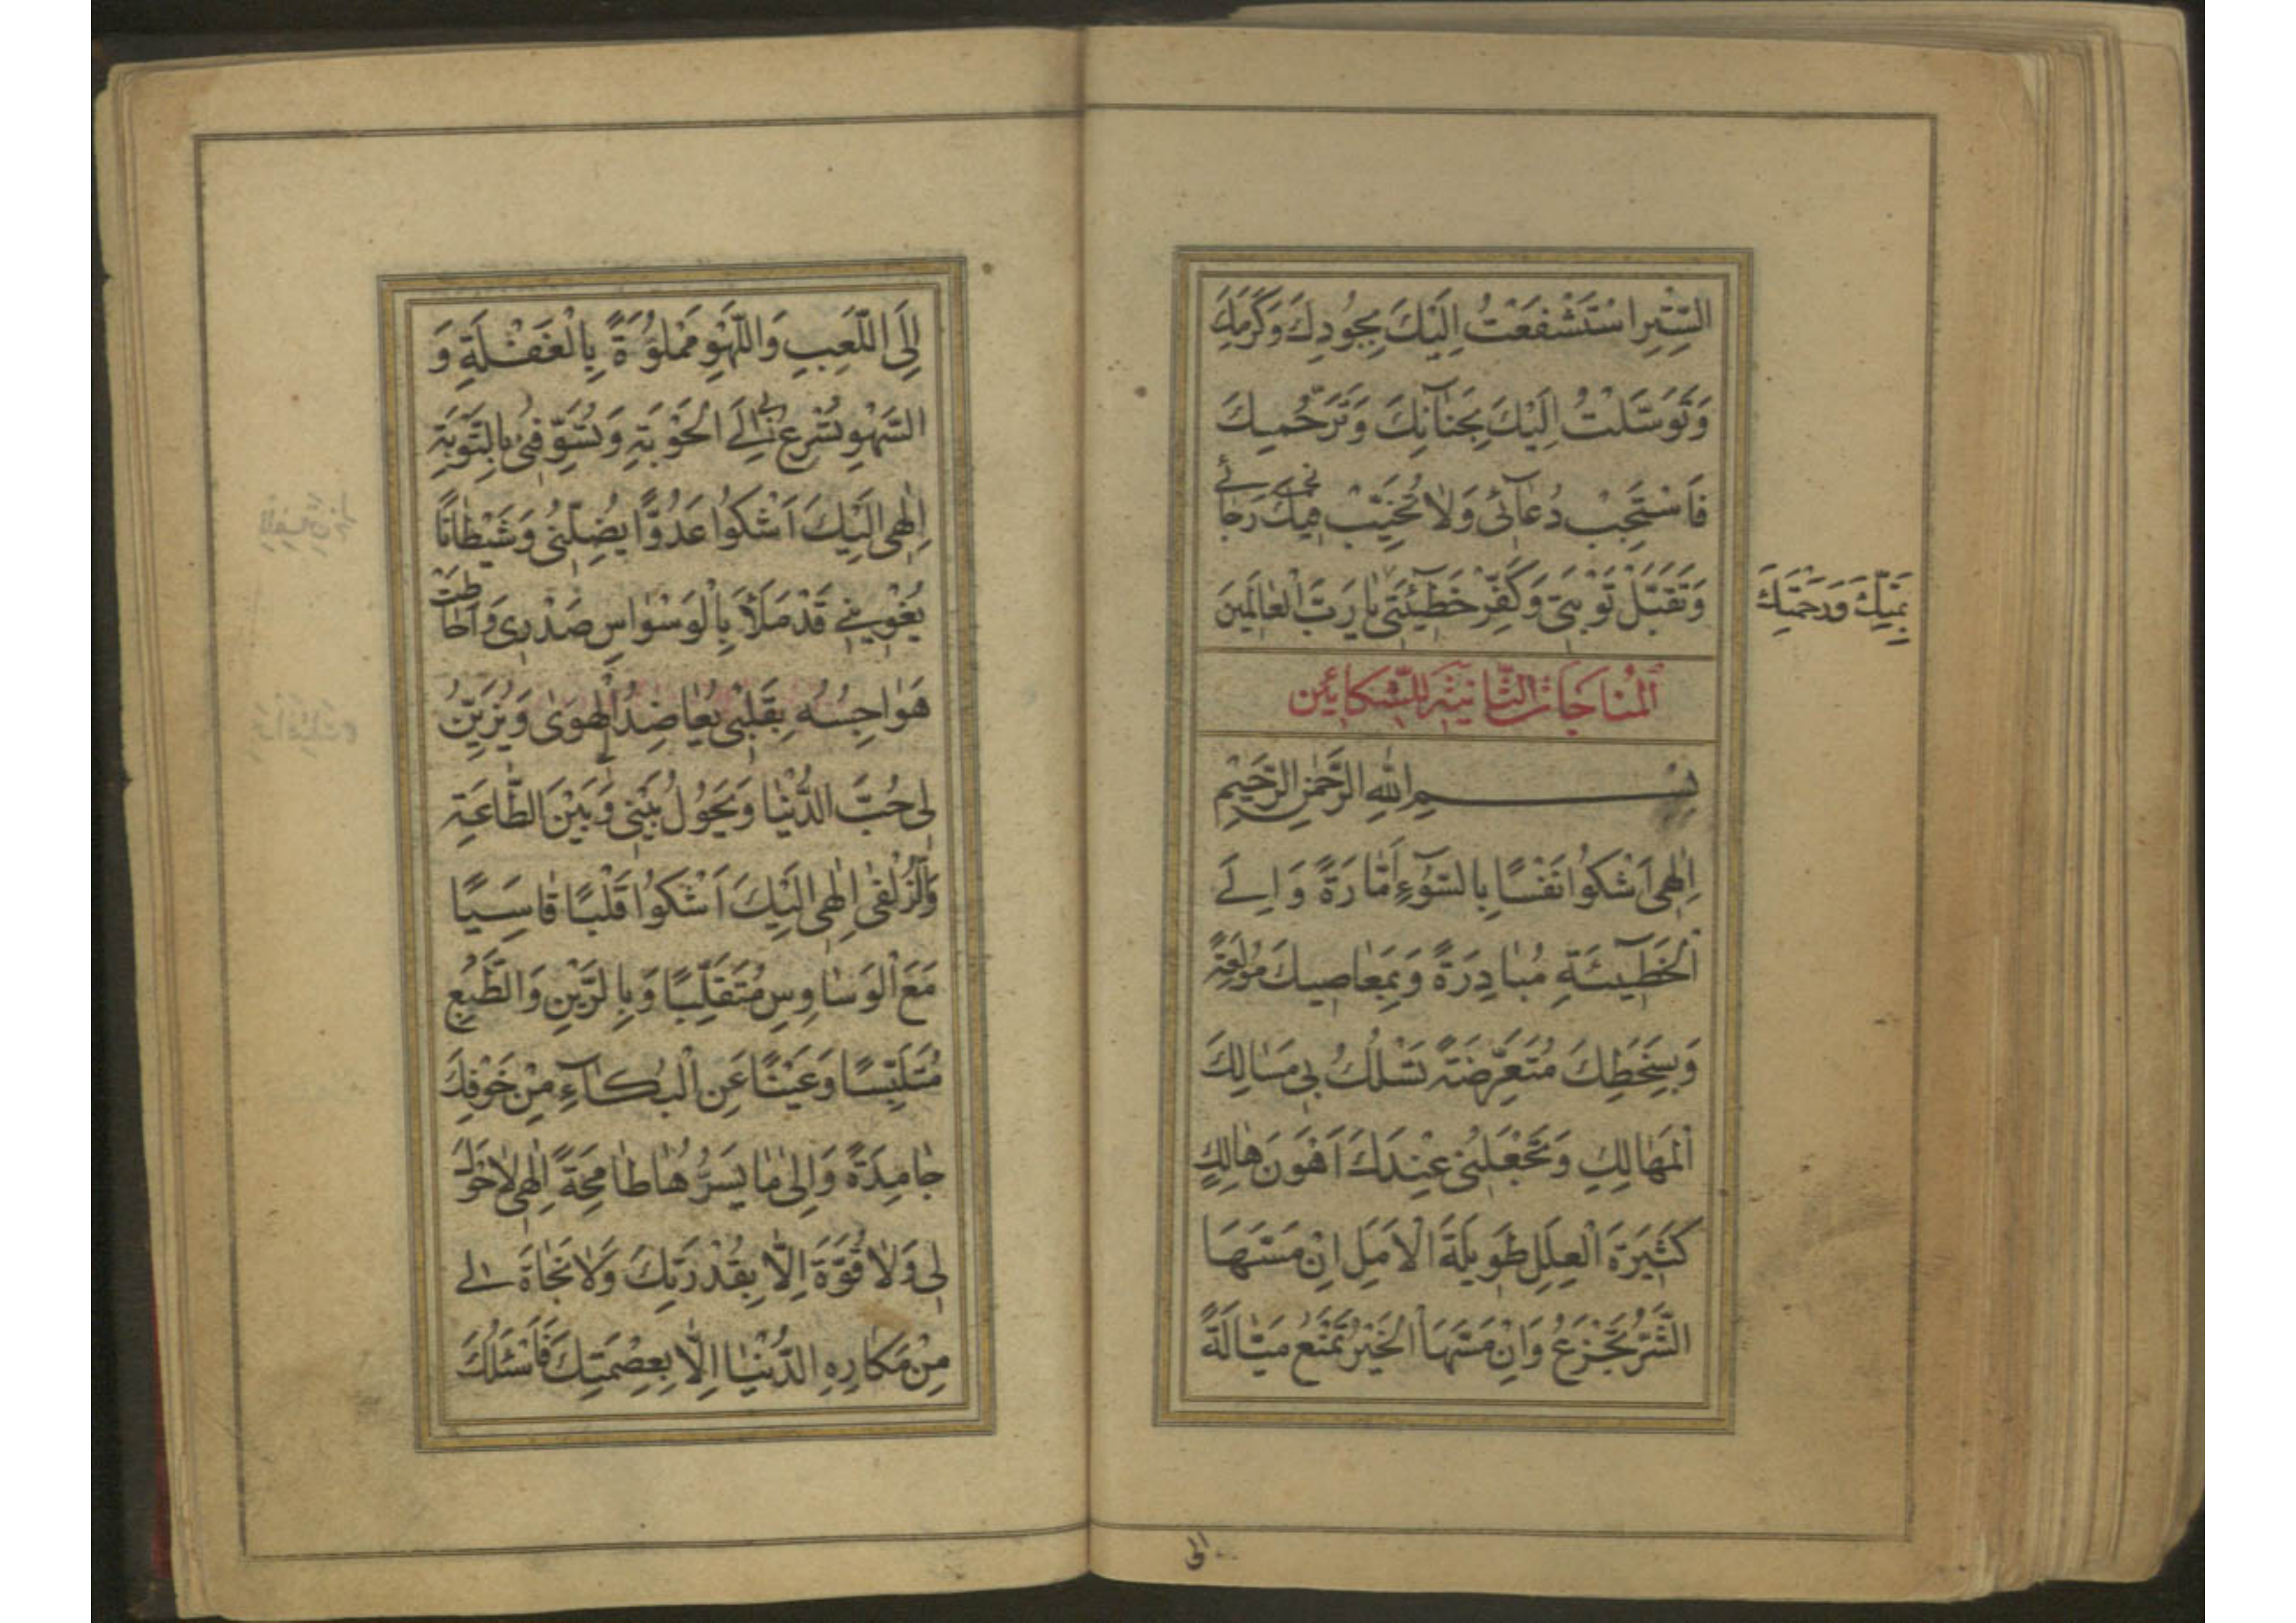 السِّتْرِ اسْتَشْفَعْتُ اِلَيْكَ بِجُودِكَ وَكَرَمِكَ
وَتَوَسَّلْتُ اِلَيْكَ بِجَنَآبِكَ وَتَرَحُّمِكَ
فَاسْتَجِبْ دُعَآئى وَلا تُخَيِّبْ فيكَ رَجآئے
وَتَقَبَّلْ تَوْبَتى وَكَفِّرْ خَطيٓئَتى يا رَبَّ الْعالَمينَ
بِمَنِّكَ وَرَحْمَتِكَ
اَلْمُناجاتُ الثّانِيَةُ لِلشّٰكائينَ
بِسْمِ اللهِ الرَّحْمٰنِ الرَّحيمِ
اِلٰهى اَشْكُوا نَفْسًا بِالسُّوٓءِ اَمّارَةً وَاِلَے
الْخَطيٓئَةِ مُبادِرَةً وَبِمَعاصيكَ مُولَعَةً
وَبِسَخَطِكَ مُتَعَرِّضَةً تَسْلُكُ بى مَسالِكَ
الْمَهالِكِ وَتَجْعَلُنى عِنْدَكَ اَهْوَنَ هالِكٍ
كَثيرَةَ الْعِلَلِ طَويلَةَ الْاَمَلِ اِنْ مَسَّهَا
الشَّرُّ تَجْزَعُ وَاِنْ مَسَّهَا الْخَيْرُ تَمْنَعُ مَيّالَةً
الى
اِلَى اللَّعِبِ وَاللَّهْوِ مَمْلُوَّةً بِالْغَفْلَةِ وَ
السَّهْوِ تُسْرِعُ بى اِلَے الْحَوْبَةِ وَتُسَوِّفُنى بِالتَّوْبَةِ
اِلٰهى اِلَيْكَ اَشْكُوا عَدُوًّا يُضِلُّنى وَشَيْطانًا
يُغْوينے قَدْ مَلَأَ بِالْوَسْواسِ صَدْرى وَاَحاطَتْ
هَواجِسُهُ بِقَلْبى يُعاضِدُ لِىَ الْهَوىٰ وَيُزَيِّنُ
لى حُبَّ الدُّنْيا وَيَحُولُ بَيْنى وَبَيْنَ الطّاعَةِ
وَالزُّلْفٰى اِلٰهى اِلَيْكَ اَشْكُوا قَلْبًا قاسِيًا
مَعَ الْوَساوِسِ مُتَقَلِّبًا وَبِالرَّيْنِ وَالطَّبْعِ
مُتَلَبِّسًا وَعَيْنًا عَنِ الْبُكآءِ مِنْ خَوْفِكَ
جامِدَةً وَاِلى ما يَسُرُّها طامِحَةً اِلٰهى لا حَوْلَ
لى وَلا قُوَّةَ اِلّا بِقُدْرَتِكَ وَلا نَجاةَ لى
مِنْ مَكارِهِ الدُّنْيا اِلّا بِعِصْمَتِكَ فَاَسْئَلُكَ